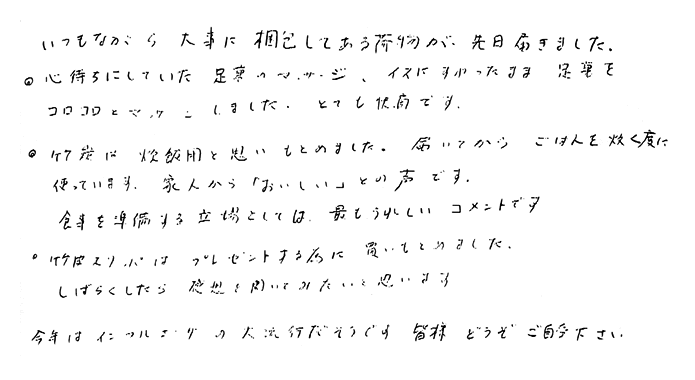 いつもながら 大事に 梱包してある荷物が、先日届きました。
● 心待ちにしていた 足裏のマッサージ、イスにすわったまま 足裏を
コロコロとマッサージしました。とても快適です。
● 竹炭は 炊飯用と思いもとめました。届いてから ごはんを炊く度に
使っています。家人から「おいしい」との声です。
食事を準備する立場としては、最もうれしい コメントです
● 竹皮スリッパは プレゼントする為に 買いもとめました。
しばらくしたら 感想を聞いてみたいと思います
今年は インフルエンザの大流行だそうです 皆様 どうぞ ご自愛下さい